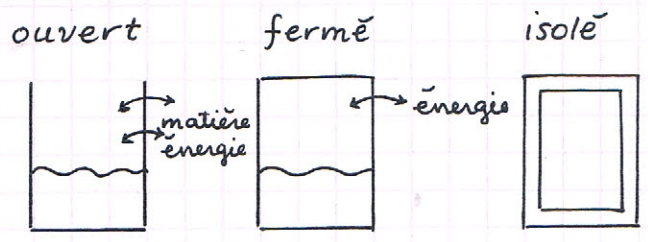 ouvert
fermé
isolé
matière
énergie
énergie